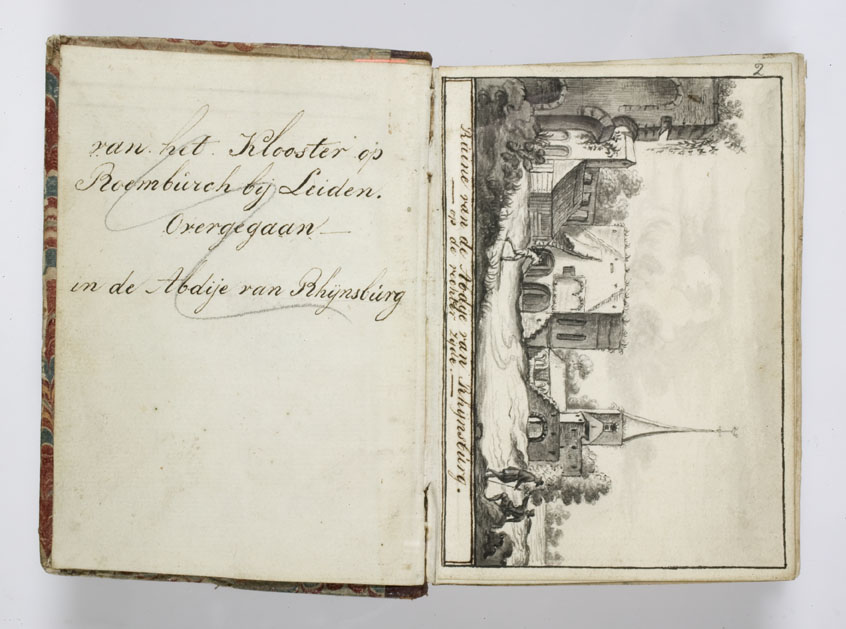 van het Klooster op
Roomburch by Leiden.
Overgegaan
in de Abdije van Rhijnsburg
2
Ruine van de Abdije van Rhynsburg.
— op de rechter zyde. —